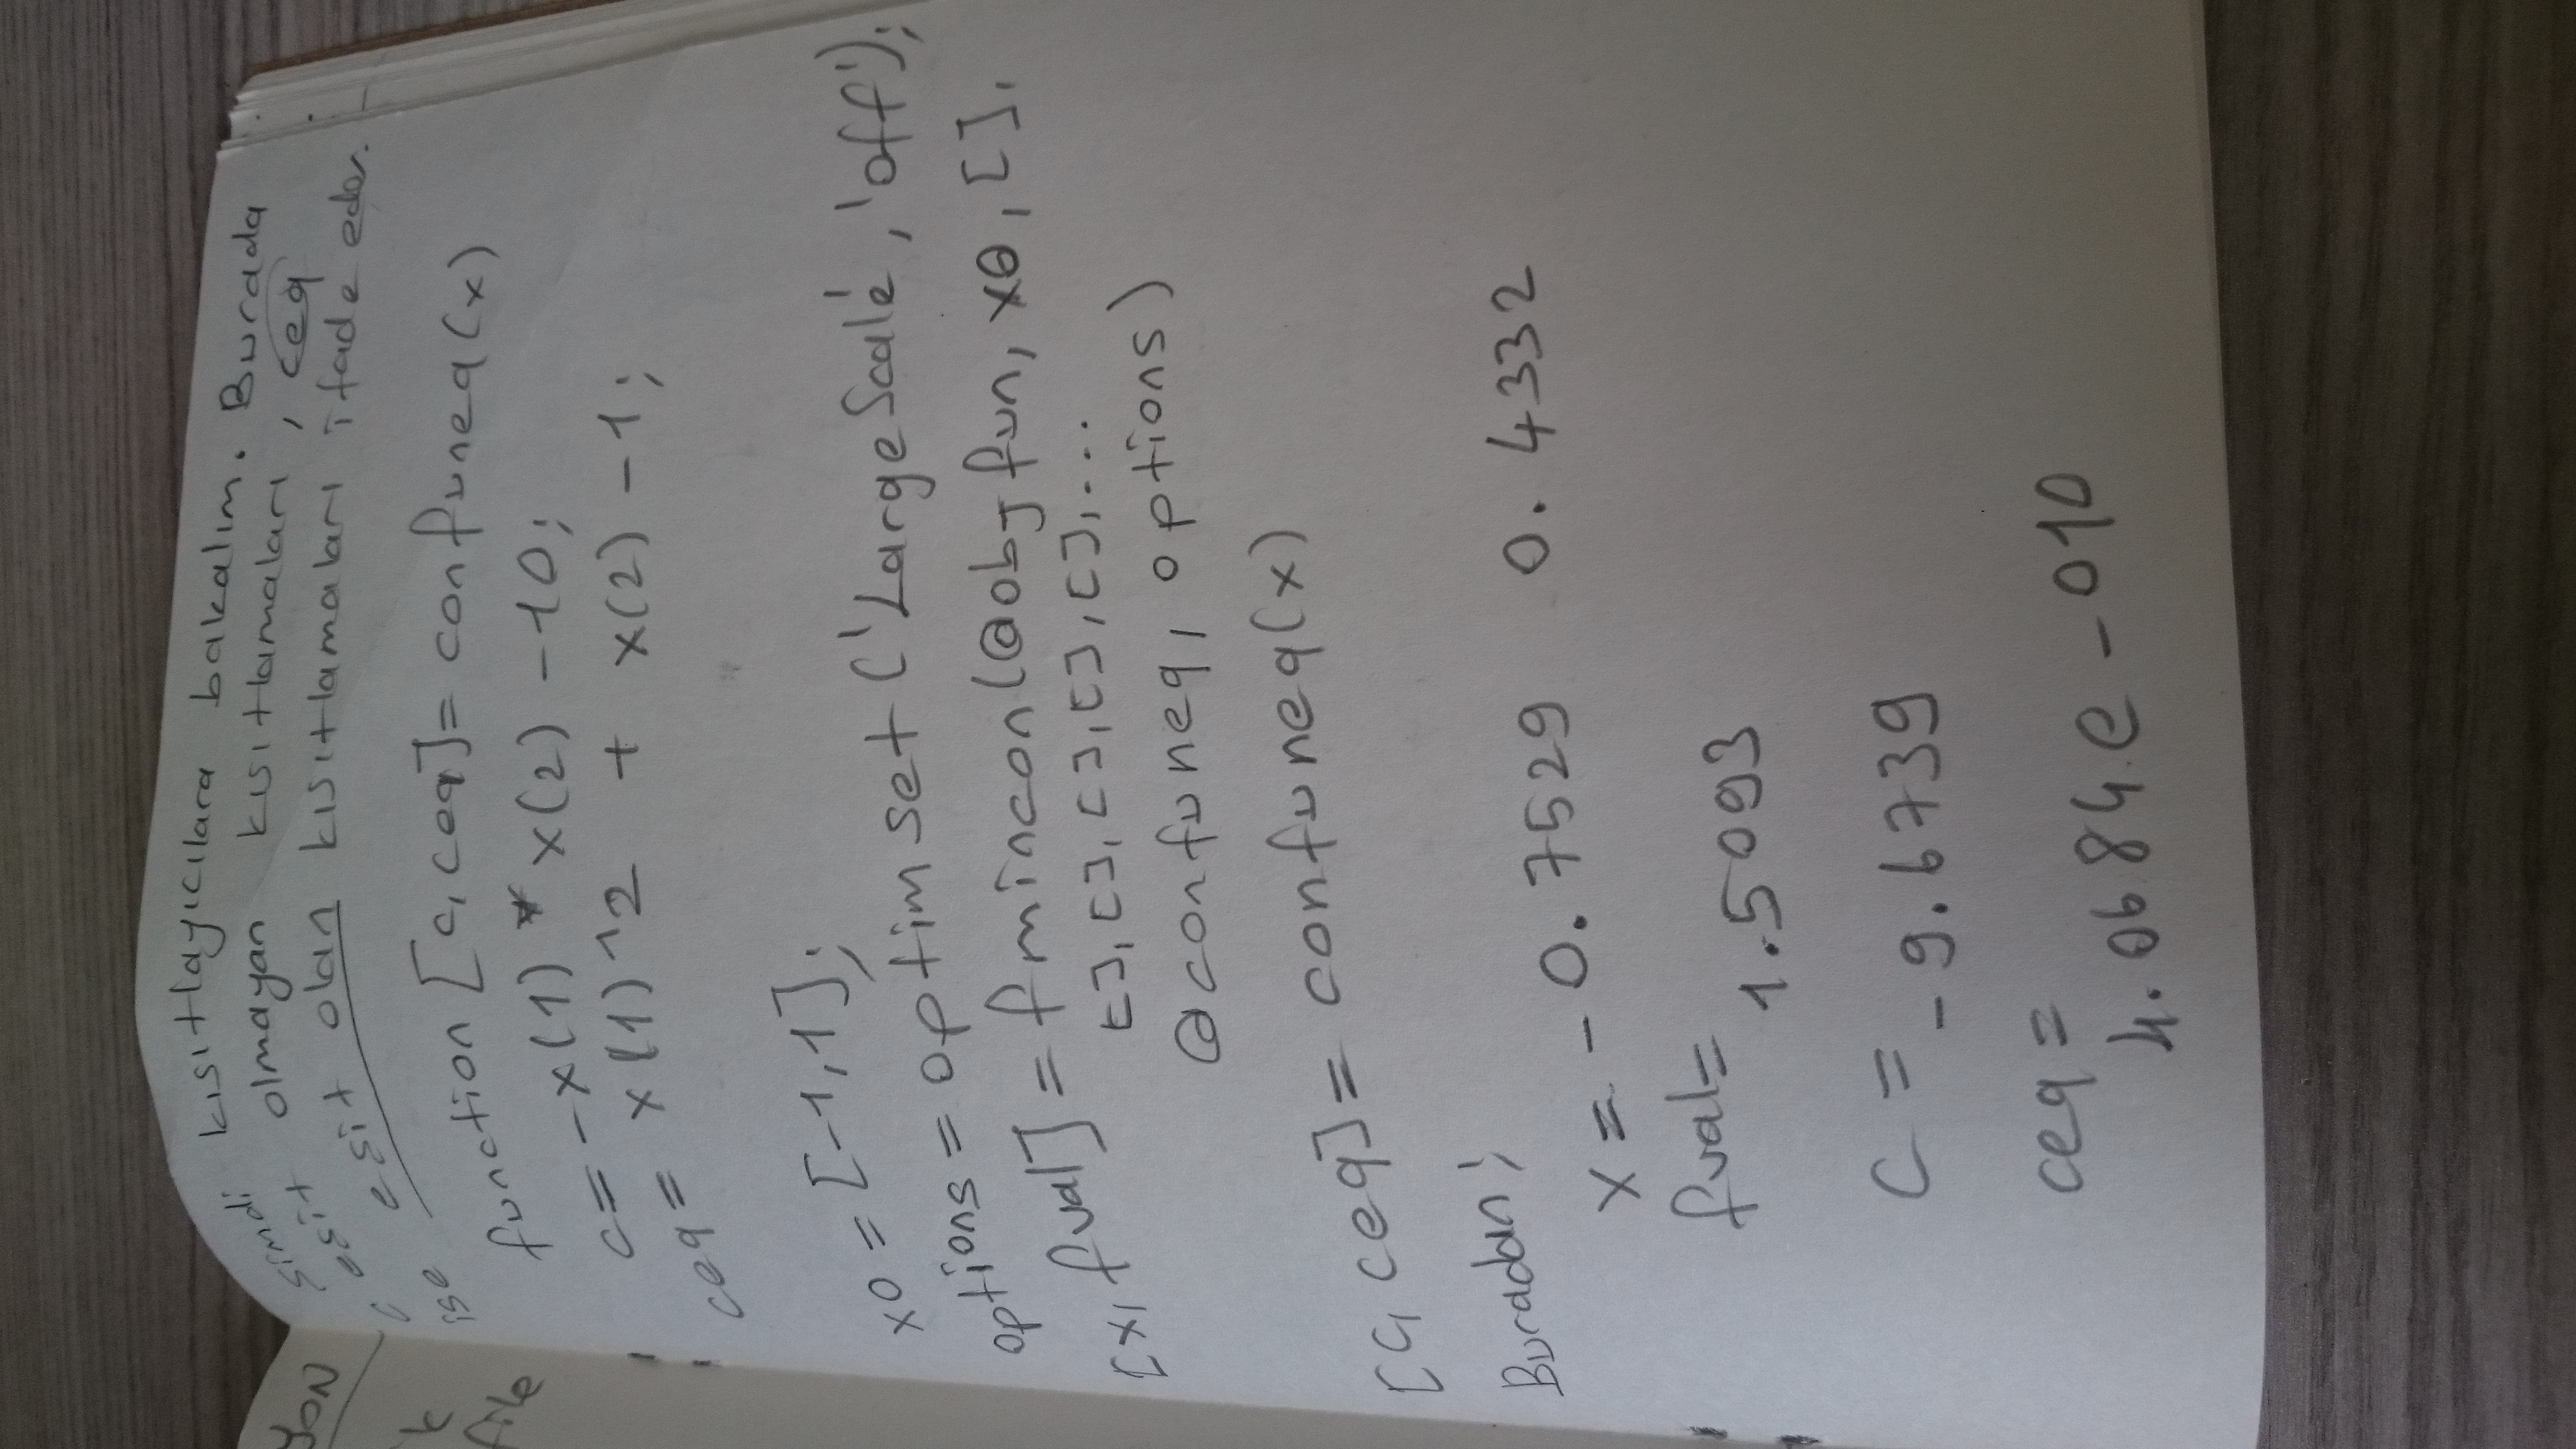 YON
k
file
şimdi kısıtlayıcılara bakalım. Burada
c eşit olmayan kısıtlamaları, ceq
ise eşit olan kısıtlamaları ifade eder.
function [c, ceq]= confuneq(x)
c= -x(1) * x(2) -10;
ceq= x(1)^2 + x(2) -1;
x0 = [-1,1];
options = optimset('LargeScale', 'off');
[x, fval] = fmincon(@objfun, x0, [],
[], [], [], [], [], ...
@confuneq, options)
[c, ceq] = confuneq(x)
Buradan;
x = -0.7529 0.4332
fval=
1.5093
c =
-9.6739
ceq =
4.0684e-010